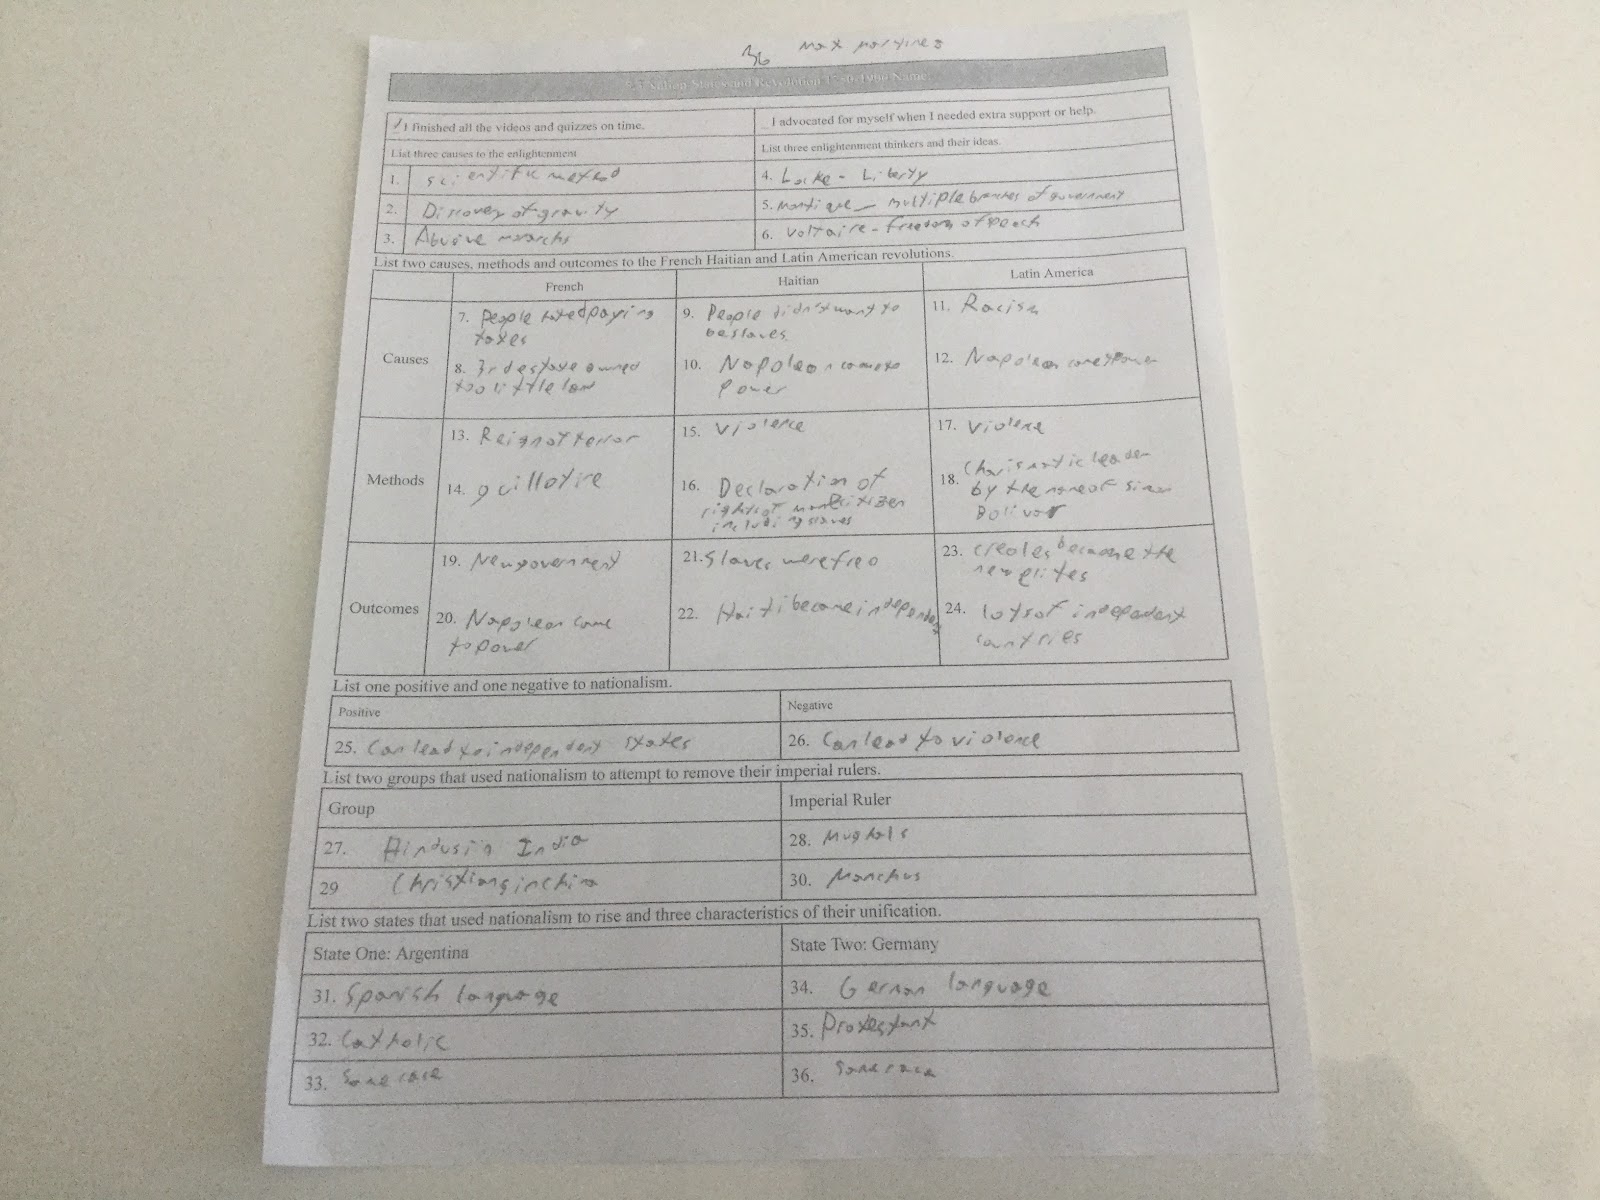 36 Max Martinez
Nation States and Revolution Name:
I finished all the videos and quizzes on time.
I advocated for myself when I needed extra support or help.
List three causes to the enlightenment
List three enlightenment thinkers and their ideas.
1. Scientific method
4. Locke - Liberty
2. Discovery of gravity
5. - multiple branches of government
3. Abusive monarchs
6. Voltaire - freedom of
List two causes, methods and outcomes to the French Haitian and Latin American revolutions.
French
Haitian
Latin America
Causes
7. People hated paying
taxes
8. 3rd estate owned
too little land
9. People didn't want to
be slaves
10. Napoleon came to
power
11. Racism
12. Napoleon came power
Methods
13. Reign of terror
14. guillotine
15. Violence
16. Declaration of
rights of man citizen
including slaves
17. Violence
18. Charismatic leader
by the name of Simon
Bolivar
Outcomes
19. New government
20. Napoleon came
to power
21. Slaves were free
22. Haiti became independent
23. creoles became the
new elites
24. lots of independent
countries
List one positive and one negative to nationalism.
Positive
Negative
25. Can lead to independent states
26. Can lead to violence
List two groups that used nationalism to attempt to remove their imperial rulers.
Group
Imperial Ruler
27. Hindus in India
28. Mughals
29 Christians in China
30. Manchus
List two states that used nationalism to rise and three characteristics of their unification.
State One: Argentina
State Two: Germany
31. Spanish language
34. German language
32. Catholic
35. Protestant
33. Same race
36. Same race